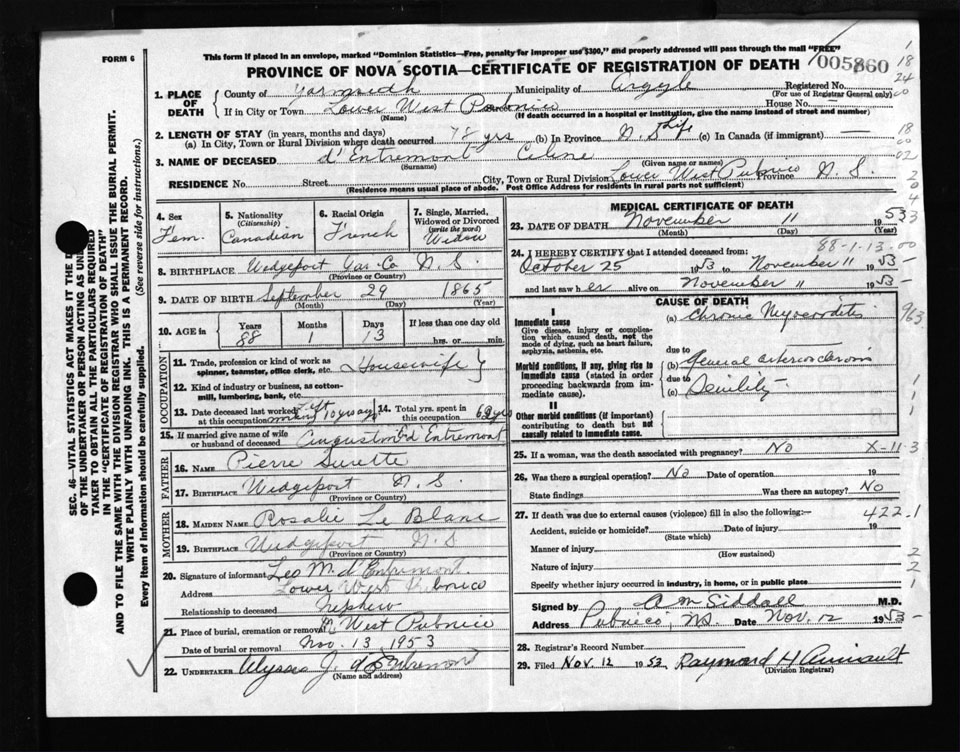 This form if placed in an envelope, marked "Dominion Statistics—Free, penalty for improper use $300," and properly addressed will pass through the mail "FREE"
FORM 6
PROVINCE OF NOVA SCOTIA—CERTIFICATE OF REGISTRATION OF DEATH
005860
1. PLACE OF DEATH
County of Yarmouth Municipality of Argyle Registered No.
(For use of Registrar General only)
If in City or Town Lower West Pubnico Street House No. —
(Name) (If death occurred in a hospital or institution, give the name instead of street and number)
2. LENGTH OF STAY (in years, months and days)
(a) In City, Town or Rural Division where death occurred 78 yrs (b) In Province N. S. Life (c) In Canada (if immigrant) —
3. NAME OF DECEASED d'Entremont Celine
(Surname) (Given name or names)
RESIDENCE No. Street City, Town or Rural Division Lower West Pubnico Province N. S.
(Residence means usual place of abode. Post Office Address for residents in rural parts not sufficient)
4. Sex
Fem.
5. Nationality (Citizenship)
Canadian
6. Racial Origin
French
7. Single, Married, Widowed or Divorced (write the word)
Widow
8. BIRTHPLACE Wedgeport Yar-Co N. S.
(Province or Country)
9. DATE OF BIRTH September 29 1865
(Month) (Day) (Year)
10. AGE in
Years Months Days If less than one day old
88 1 13 hrs. or min.
OCCUPATION
11. Trade, profession or kind of work as spinner, teamster, office clerk, etc. Housewife
12. Kind of industry or business, as cotton-mill, lumbering, bank, etc.
13. Date deceased last worked at this occupation 10 years
14. Total yrs. spent in this occupation 62 yrs
15. If married give name of wife or husband of deceased Augustin d'Entremont
FATHER
16. NAME Pierre Surette
17. BIRTHPLACE Wedgeport N. S.
(Province or Country)
MOTHER
18. MAIDEN NAME Rosalie Le Blanc
19. BIRTHPLACE Wedgeport N. S
(Province or Country)
20. Signature of informant Leo M. d'Entremont.
Address Lower West Pubnico
Relationship to deceased nephew
21. Place of burial, cremation or removal West Pubnico
Date of burial or removal Nov. 13 1953
22. UNDERTAKER Ulysses J. d'Entremont
(Name and address)
MEDICAL CERTIFICATE OF DEATH
23. DATE OF DEATH November 11 1953
(Month) (Day) (Year)
88-1-13-00
24. I HEREBY CERTIFY that I attended deceased from:
October 25 1953 to November 11 1953
and last saw her alive on November 11 1953
CAUSE OF DEATH
I
Immediate cause
Give disease, injury or complication which caused death, not the mode of dying, such as heart failure, asphyxia, asthenia, etc.
(a) Chronic Myocarditis
due to
Morbid conditions, if any, giving rise to immediate cause (stated in order proceeding backwards from immediate cause).
(b) General arteriosclerosis
due to
(c) Senility
II
Other morbid conditions (if important) contributing to death but not causally related to immediate cause.
25. If a woman, was the death associated with pregnancy? No
X-11-3
26. Was there a surgical operation? No Date of operation 19
State findings Was there an autopsy? No
27. If death was due to external causes (violence) fill in also the following:—
422.1
Accident, suicide or homicide? Date of injury 19
(State which)
Manner of injury
(How sustained)
Nature of injury
Specify whether injury occurred in industry, in home, or in public place
Signed by A M Siddall M.D.
Address Pubnico, N.S. Date Nov. 12 1953
28. Registrar's Record Number
29. Filed Nov. 12 1953 Raymond H Amirault
(Division Registrar)
SEC. 46—VITAL STATISTICS ACT MAKES IT THE D
OF THE UNDERTAKER OR PERSON ACTING AS UND
TAKER TO OBTAIN ALL THE PARTICULARS REQUIRED
IN THE "CERTIFICATE OF REGISTRATION OF DEATH"
AND TO FILE THE SAME WITH THE DIVISION REGISTRAR WHO SHALL ISSUE THE BURIAL PERMIT.
WRITE PLAINLY WITH UNFADING INK. THIS IS A PERMANENT RECORD.
Every item of Information should be carefully supplied. (See reverse side for instructions.)